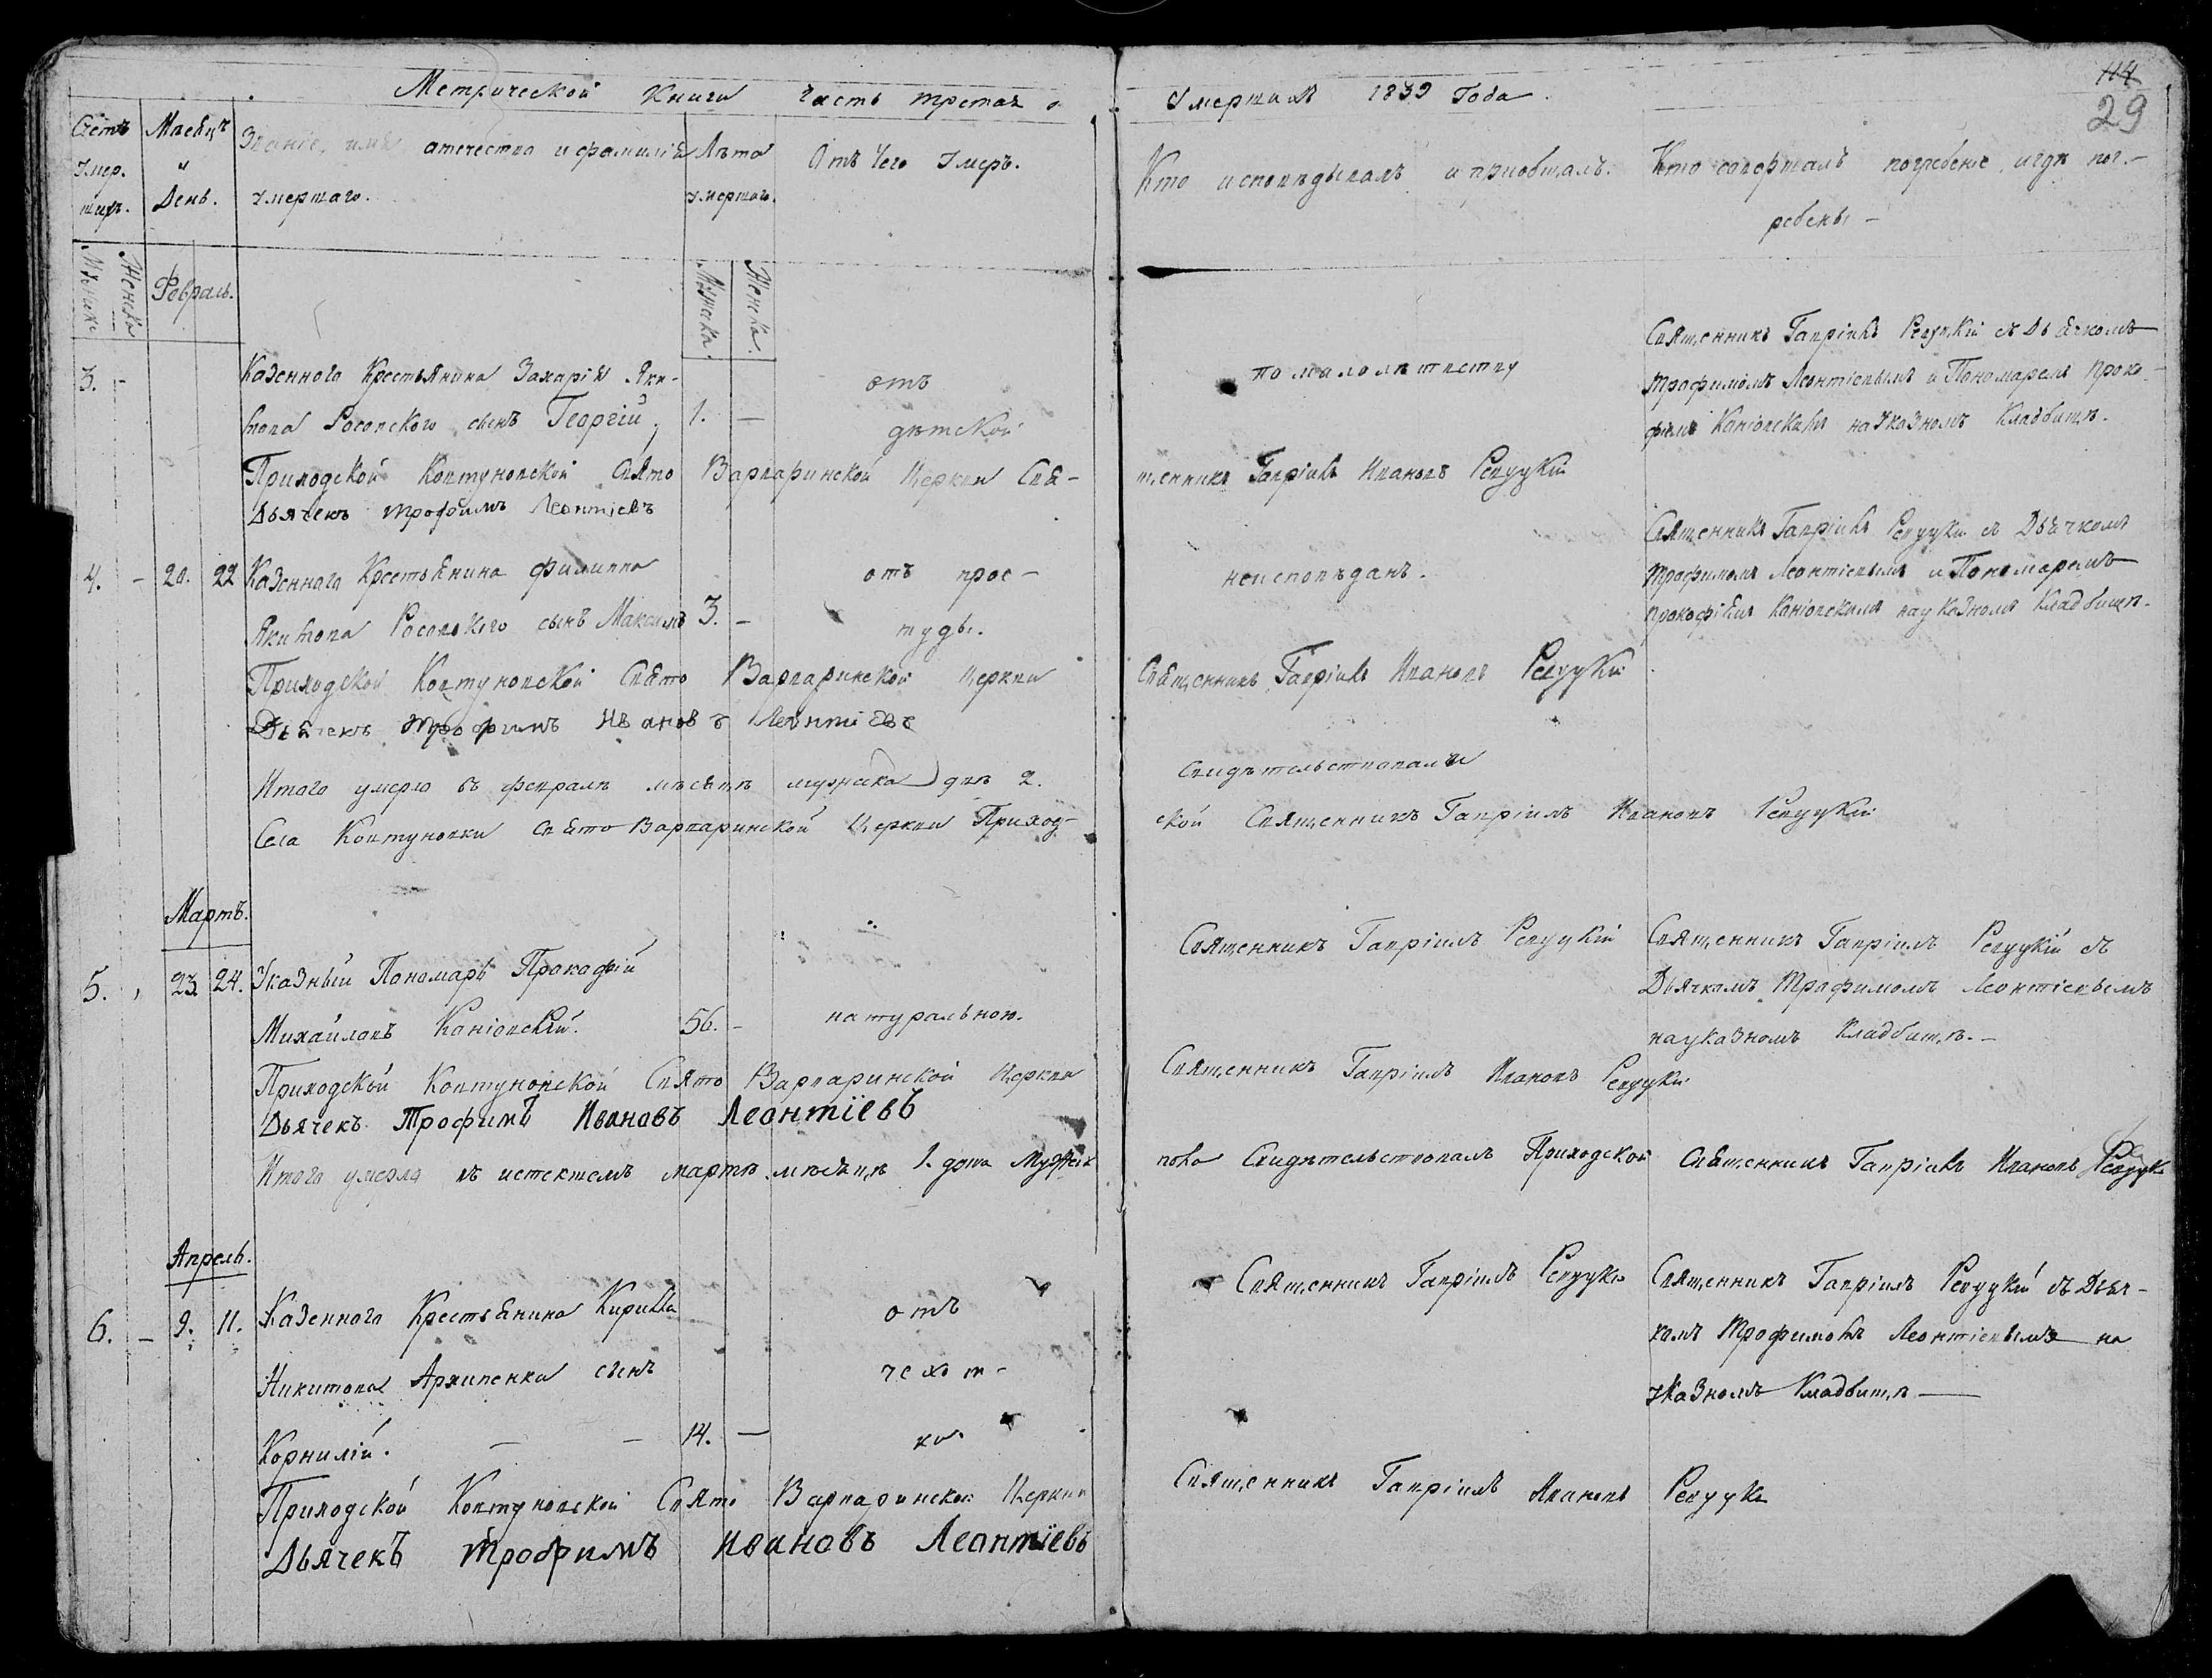 114
29
Метрической Книги Часть третая о
Умершихъ 1839 Года.
Счетъ умер. шихъ.
Месяцъ и День.
Званіе, имя отечество и фамилія умершаго.
Лѣта умершаго.
Отъ Чего Умеръ.
Кто исповѣдывалъ и приобщалъ.
Кто совершалъ погребеніе и гдѣ пог.-
ребены -
Мужеска
Женска
Февраль.
Мужеска.
Женска.
3. -
Казенного Крестьянина Захарія Яки-
това Росовского сынъ Георгій. 1. -
отъ
дѣтской
по малолѣтству
Священникъ Гавріилъ Реуцкій съ Дьячкомъ
Трофимомъ Леонтіевымъ и Пономаремъ Проко-
фіемъ Каніовскимъ на Указномъ Кладбищѣ.
Приходской Ковтуновской Свято Варваринской Церкви Свя-
щенникъ Гавріилъ Ивановъ Реуцкій
Дьячекъ Трофимъ Леонтіевъ
4. - 20. 22 Казенного Крестьянина Филиппа
Якитова Росовского сынъ Максимъ 3. -
отъ прос-
туды.
неисповѣданъ.
Священникъ Гавріилъ Реуцкій съ Дьячкомъ
Трофимомъ Леонтіевымъ и Пономаремъ
Прокофіемъ Каніовскимъ на указномъ Кладбищѣ.
Приходской Ковтуновской Свято Варваринской Церкви
Священникъ Гавріилъ Ивановъ Реуцкій
Дьячекъ Трофимъ Ивановъ Леонтіевъ
Итого умерло въ февралѣ мѣсяцѣ мужеска двѣ 2.
Свидѣтельствовалъ
Села Ковтуновки Свято Варваринской Церкви Приход-
ской Священникъ Гавріилъ Ивановъ Реуцкій
Мартъ.
5. 23. 24. Указный Пономарь Прокофій
Михайловъ Каніовскій. 56. -
натуральною.
Священникъ Гавріилъ Реуцкій
Священникъ Гавріилъ Реуцкій съ
Дьячкомъ Трофимомъ Леонтіевымъ
на указномъ Кладбищѣ. -
Приходской Ковтуновской Свято Варваринской Церкви
Священникъ Гавріилъ Ивановъ Реуцкій
Дьячекъ Трофимъ Ивановъ Леонтіевъ
Итого умерло въ истекшемъ мартѣ мѣсяцѣ 1. душа Мужеск
пола Свидѣтельствовалъ Приходской Священникъ Гавріилъ Ивановъ Реуцк
Апрель.
6. - 9. 11. Казенного Крестьянина Кирилла
Никитова Архипенка сынъ
Корнилій. - - 14. -
отъ
чехот-
ки.
Священникъ Гавріилъ Реуцкій
Священникъ Гавріилъ Реуцкій съ Дьяч-
комъ Трофимомъ Леонтіевымъ на
указномъ Кладбищѣ
Приходской Ковтуновской Свято Варваринской Церкви
Священникъ Гавріилъ Ивановъ Реуцкій
Дьячекъ Трофимъ Ивановъ Леонтіевъ